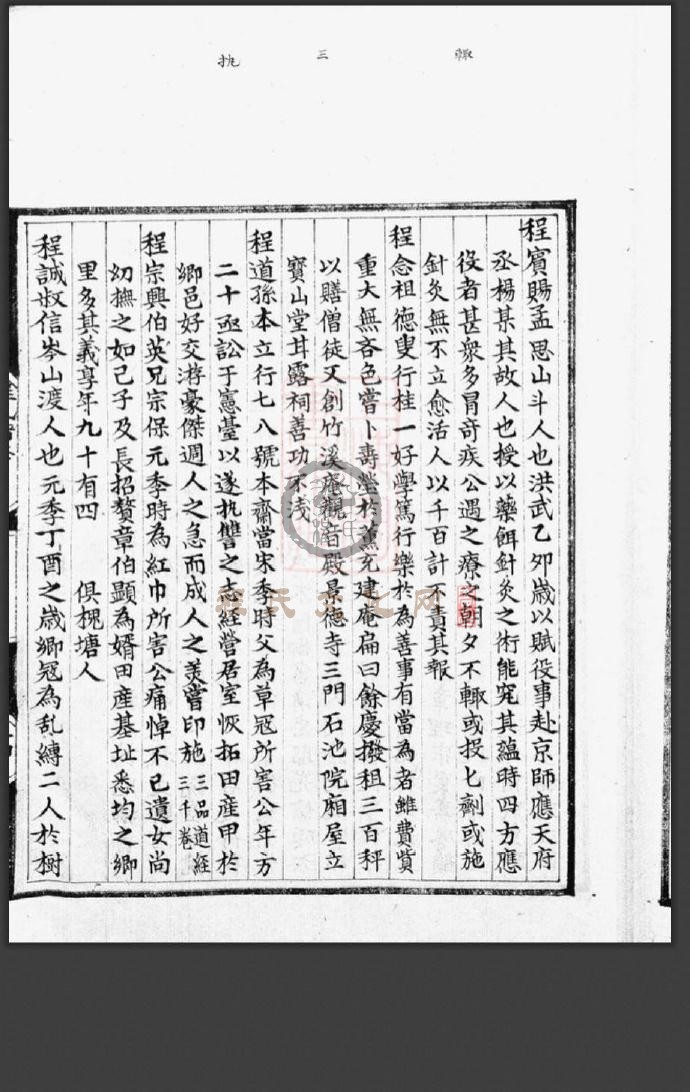 輙
三
执
程賔賜孟思山斗人也洪武乙夘歲以賦役事赴京師應天府
丞楊某其故人也授以藥餌針灸之術能究其蘊時四方應
役者甚衆多冒奇疾公遇之療之朝夕不輙或投匕劑或施
針灸無不立愈活人以千百計不責其報
程念祖德叟行桂一好學篤行樂於為善事有當為者雖費貲
重大無吝色嘗卜壽塋於薫充建庵扁曰餘慶撥租三百秤
以贍僧徒又創竹溪庵觀音殿景德寺三門石池院廂屋立
寳山堂甘露祠善功不浅
程道孫本立行七八號本齋當宋季時父為草冦所害公年方
二十亟訟于憲臺以遂执讐之志經營居室恢拓田産甲於
鄉邑好交游豪傑週人之急而成人之美嘗印施三品道經三千卷
程宗興伯英兄宗保元季時為紅巾所害公痛悼不已遺女尚
幼撫之如己子及長招贅章伯顯為婿田産基址悉均之鄉
里多其義享年九十有四 俱槐塘人
程誠叔信岑山渡人也元季丁酉之歳鄉冦為乱縛二人於樹
程氏文化网